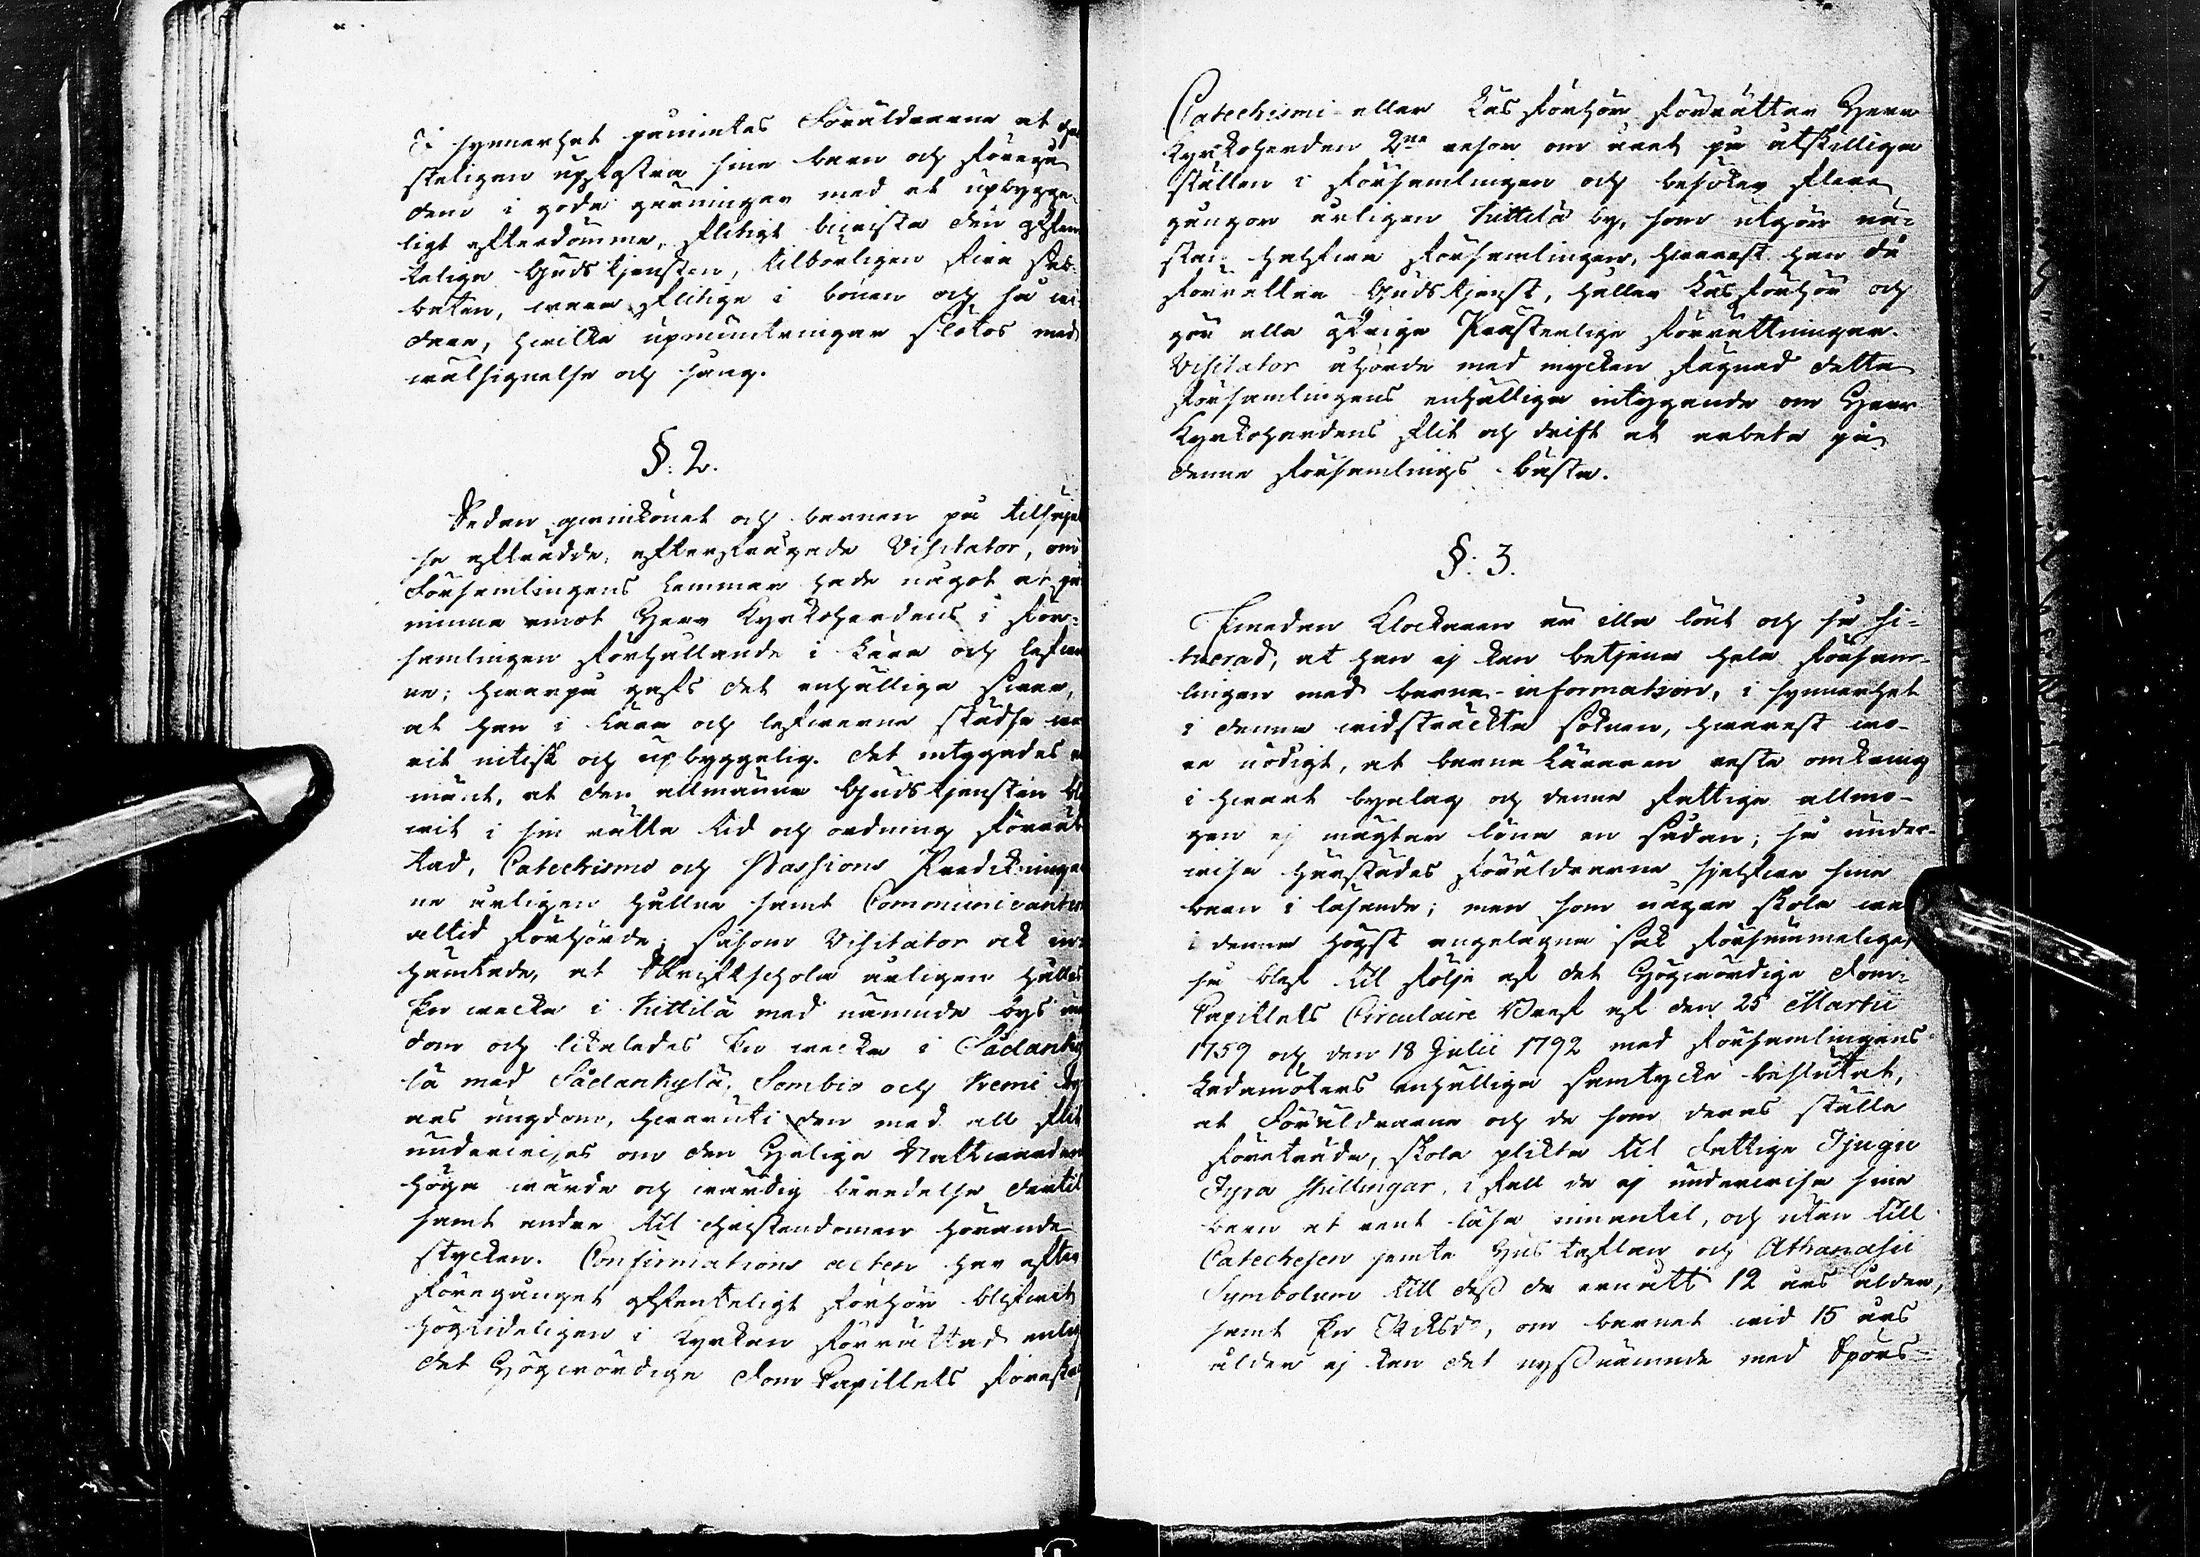 I synnerhet påmintes Föräldrarna at
steligen upfostra sina barn och föregå
dem i goda gärningar med et upbygge-
ligt efterdömme, flitigt bevista den offen
teliga Gudstjensten, tilbörligen fira Sab-
baten, wara flitiga i bönen och så wi-
dare, hwilka upmuntringar slötos med
wälsignelse och sång.
§: 2.
Sedan qwinkönet och barnen på tilsäjel
se afträdde, efterfrågade Visitator, om
Församlingens Lemmar hade något at på
minna emot Herr Kyrkoherdens i För-
samlingen förhållande i Lära och lefwer
ne; hwarpå gafs det enhälliga swar,
at han i Lära och lefwerne städse wa
rit nitisk och upbyggelig. Det intygades
mänt, at den allmänna Gudstjensten bli
wit i sin rätta tid och ordning förrät
tad, Catechismi och Passions Predikningar
ne årligen hållna samt Communicanter
altid förhörde; såsom Visitator ock in-
hämtade, at Skriftschola årligen hålles
En wecka i Kittilä med nämnde bys ung
dom och likaledes En wecka i Sådanky
lä med Sådankylä, Sombio och Kemi by
ars ungdom, hwaruti den med all flit
underwises om den Heliga Nattwarden
höga wärde och wärdig beredelse dertil
samt andra til christendomen hörande
stycken. Confirmations acten har efter
föregånget offenteligt förhör blifwit
högtideligen i Kyrkan förrättad enlig
det Högwördige Dom Capitlets föreskr
Catechismi eller Läsförhör förrättar Herr
Kyrkoherden 2ne resor om året på åtskilliga
ställen i församlingen och besöker flera
gångor årligen Kittilä by, som utgör nä-
stan halfwa församlingen, hwarest han då
förrättar Gudstjenst, håller Läsförhör och
gör alla öfriga Prästerliga förrättningar.
Visitator åhörde med mycken fägnad detta
församlingens enhälliga intygande om Herr
Kyrkoherdens flit och drift at arbeta på
denna församlings bästa.
§: 3.
Emedan Klockaren är illa lönt och så si-
tuerad, at han ej kan betjena hela försam-
lingen med barna-information, i synnerhet
i denna widsträckta soknen, hwarest wo-
re nödigt, at barna Läraren reste omkring
i hwart byalag och denna fattiga allmo-
gen ej mägtar löna en sådan; så under-
wisa härstädes föräldrarna sjelfwa sina
barn i läsande; men som någre skola wa
i denna högst angelägna sak försummelige,
så blef til följe af det Högwördige Dom-
Capitlets Circulaire Bref af den 25 Martii
1759 och den 18 Julii 1792 med församlingens
Ledamöters enhälliga samtycke beslutat,
at Föräldrarna och de som deras ställe
företräda, skola plikta til Fattige Tjugu
Fyra skillingar, i fall de ej underwisa sina
barn at rent läsa innantil, och utan till
Catechesen jemte Hus taflan och Athanasii
Symbolum till dess de ernått 12 års ålder,
samt En Rd, om barnet wid 15 års
ålder ej kan det nyssnämnde med Spörs-